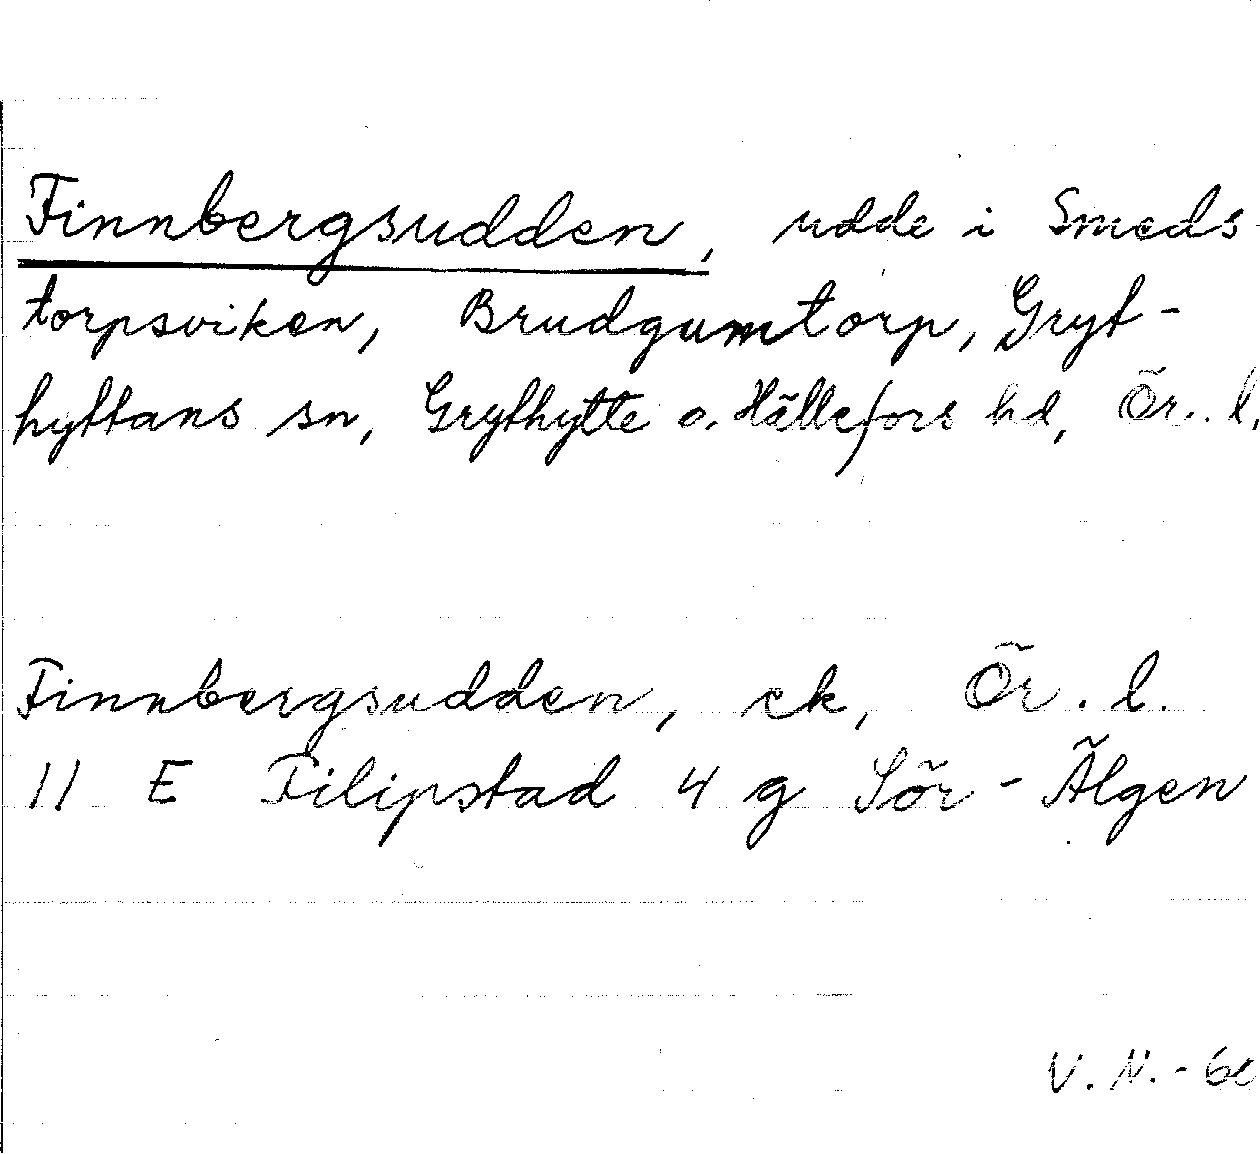 Finnbergsudden, udde i Smeds-
torpsviken, Brudgumtorp, Gryt-
hyttans sn, Grythytte o. Hällefors hd, Ör. l.
Finnbergsudden, ek, Ör. l.
11 E Filipstad 4 g Sör-Älgen
V. N. -